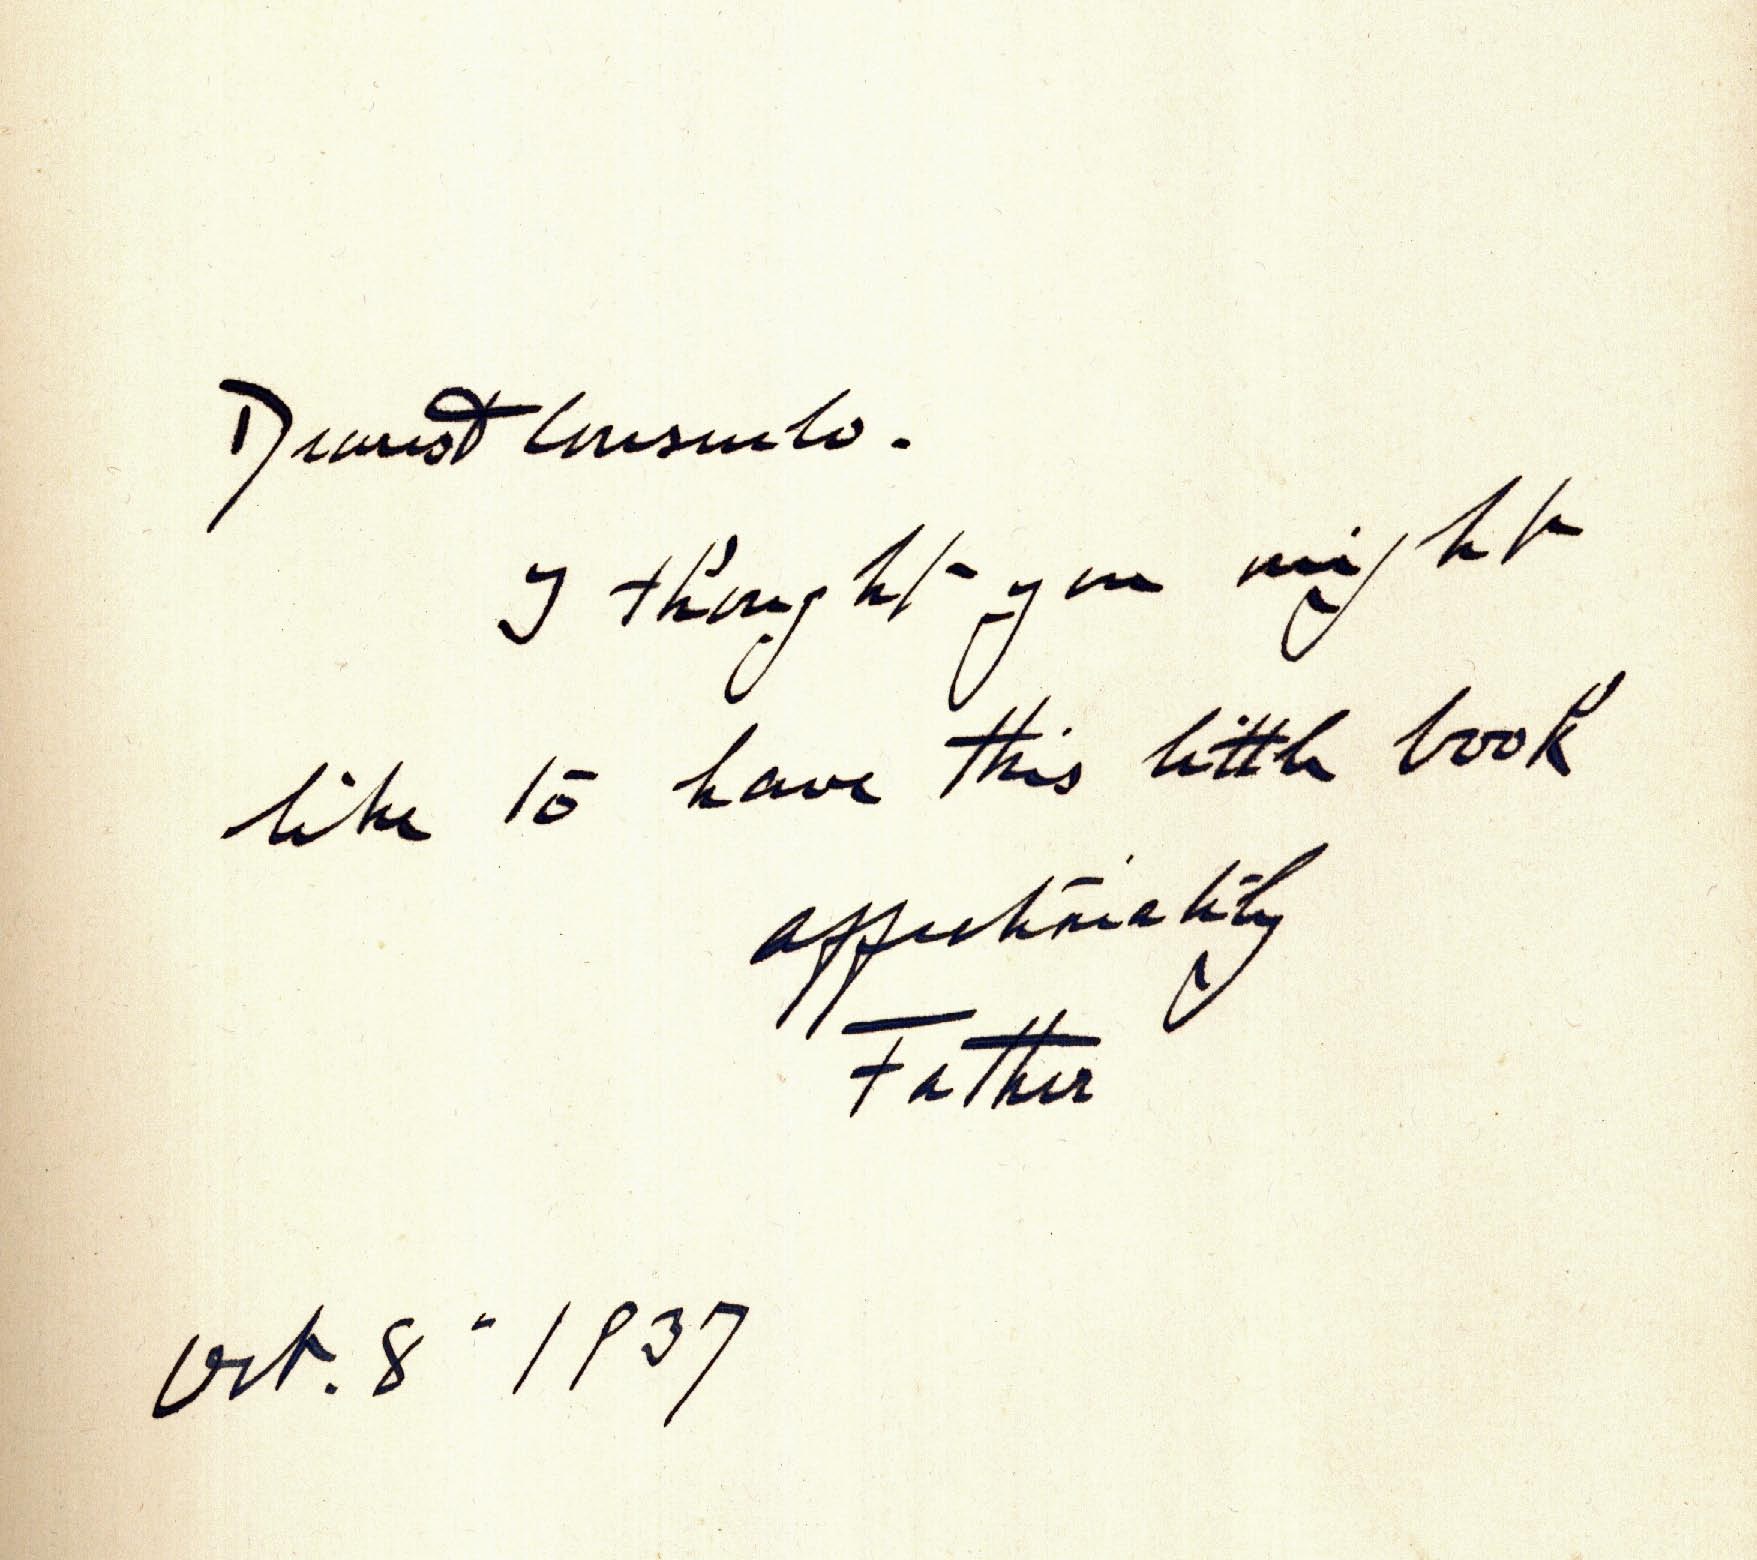 Dearest Consuelo.
I thought you might
like to have this little book
affectionately
Father
Oct. 8 - 1937